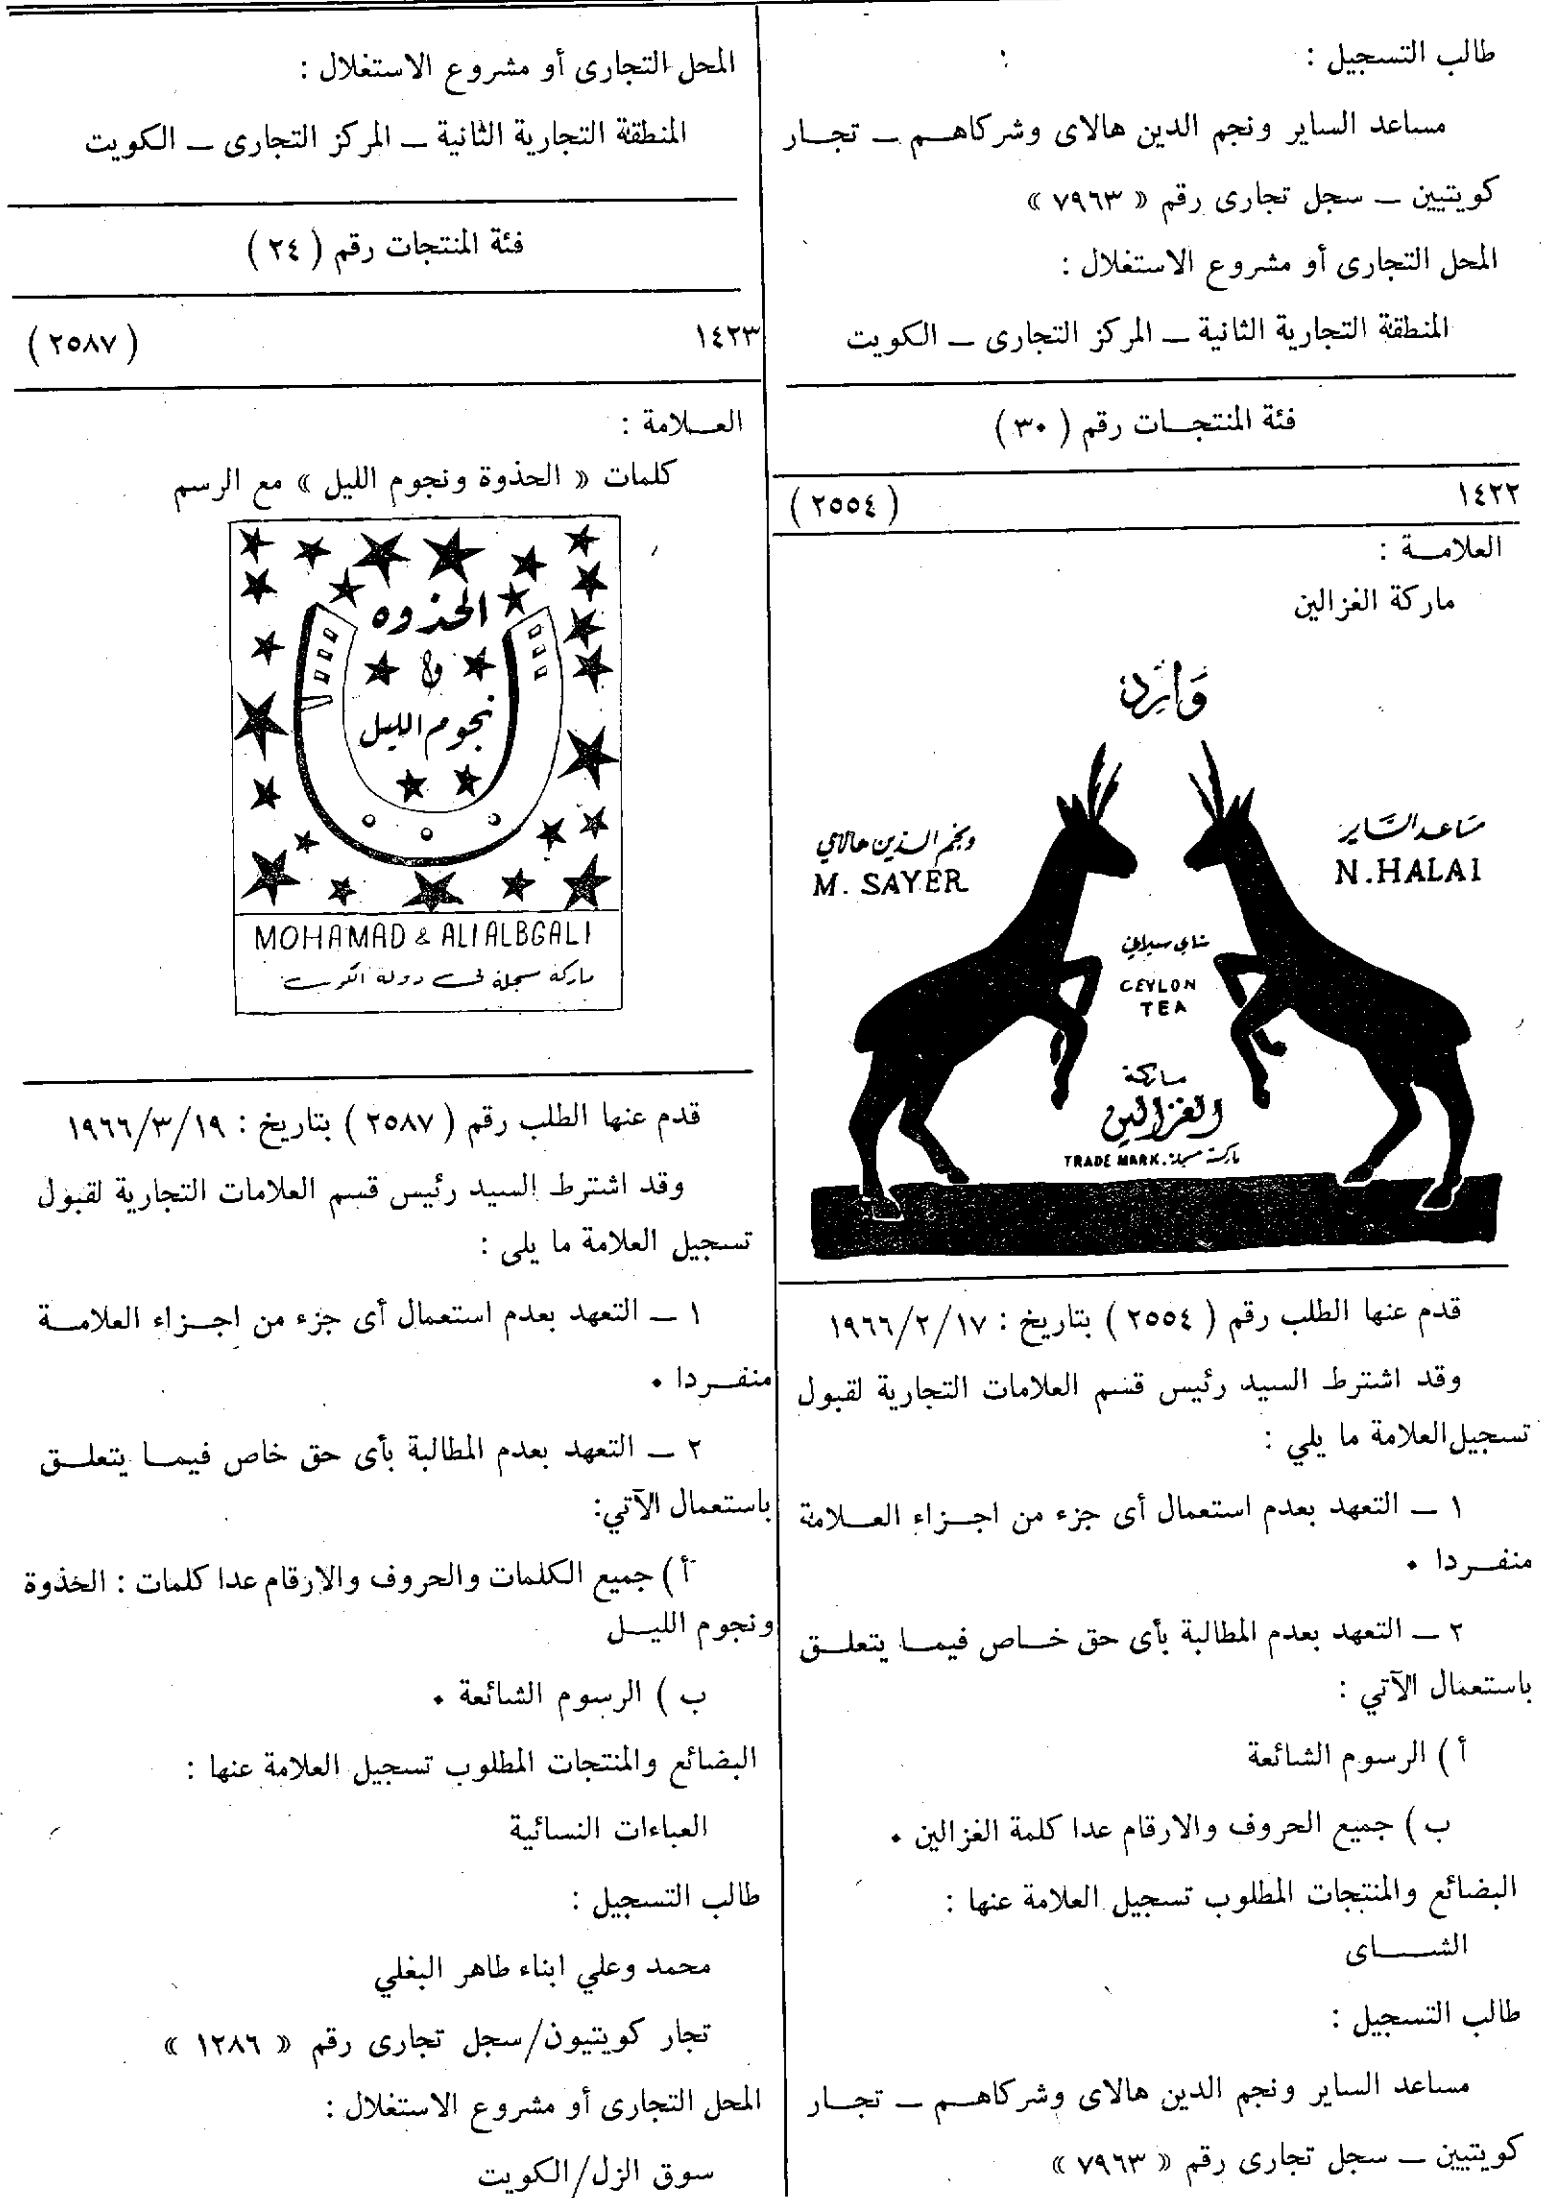 طالب التسجيل :
مساعد الساير ونجم الدين هالاى وشركاهـــم ــ تجـــار
كويتيين ــ سجل تجارى رقم « ٧٩٦٣ »
المحل التجارى أو مشروع الاستغلال :
المنطقة التجارية الثانية ــ المركز التجارى ــ الكويت
فئة المنتجـــات رقم ( ٣٠ )
١٤٢٢ ( ٢٥٥٤ )
العلامـــة :
ماركة الغزالين
وَارِد
مساعد الساير
N.HALAI
ونجم الدين هالاي
M. SAYER
شاي سيلاني
CEYLON
TEA
ماركة
الغزالين
TRADE MARK. ماركة مسجلة
قدم عنها الطلب رقم ( ٢٥٥٤ ) بتاريخ : ١٩٦٦/٢/١٧
وقد اشترط السيد رئيس قسم العلامات التجارية لقبول
تسجيل العلامة ما يلي :
١ ــ التعهد بعدم استعمال أى جزء من اجـــزاء العـــلامة
منفـــردا ٠
٢ ــ التعهد بعدم المطالبة بأى حق خـــاص فيمـــا يتعلـــق
باستعمال الآتي :
أ ) الرسوم الشائعة
ب ) جميع الحروف والارقام عدا كلمة الغزالين ٠
البضائع والمنتجات المطلوب تسجيل العلامة عنها :
الشـــــاى
طالب التسجيل :
مساعد الساير ونجم الدين هالاى وشركاهـــم ــ تجـــار
كويتيين ــ سجل تجارى رقم « ٧٩٦٣ »
المحل التجارى أو مشروع الاستغلال :
المنطقة التجارية الثانية ــ المركز التجارى ــ الكويت
فئة المنتجات رقم ( ٢٤ )
١٤٢٣ ( ٢٥٨٧ )
العـــلامة :
كلمات « الحذوة ونجوم الليل » مع الرسم
الحذوه
و
نجوم الليل
MOHAMAD & ALI ALBGALI
ماركة مسجلة في دولة الكويت
قدم عنها الطلب رقم ( ٢٥٨٧ ) بتاريخ : ١٩٦٦/٣/١٩
وقد اشترط السيد رئيس قسم العلامات التجارية لقبول
تسجيل العلامة ما يلى :
١ ــ التعهد بعدم استعمال أى جزء من اجـــزاء العلامـــة
منفـــردا ٠
٢ ــ التعهد بعدم المطالبة بأى حق خاص فيمـــا يتعلـــق
باستعمال الآتي:
أ ) جميع الكلمات والحروف والارقام عدا كلمات : الحذوة
ونجوم الليـــل
ب ) الرسوم الشائعة ٠
البضائع والمنتجات المطلوب تسجيل العلامة عنها :
العباءات النسائية
طالب التسجيل :
محمد وعلي ابناء طاهر البغلي
تجار كويتيون/سجل تجارى رقم « ١٢٨٦ »
المحل التجارى أو مشروع الاستغلال :
سوق الزل/الكويت